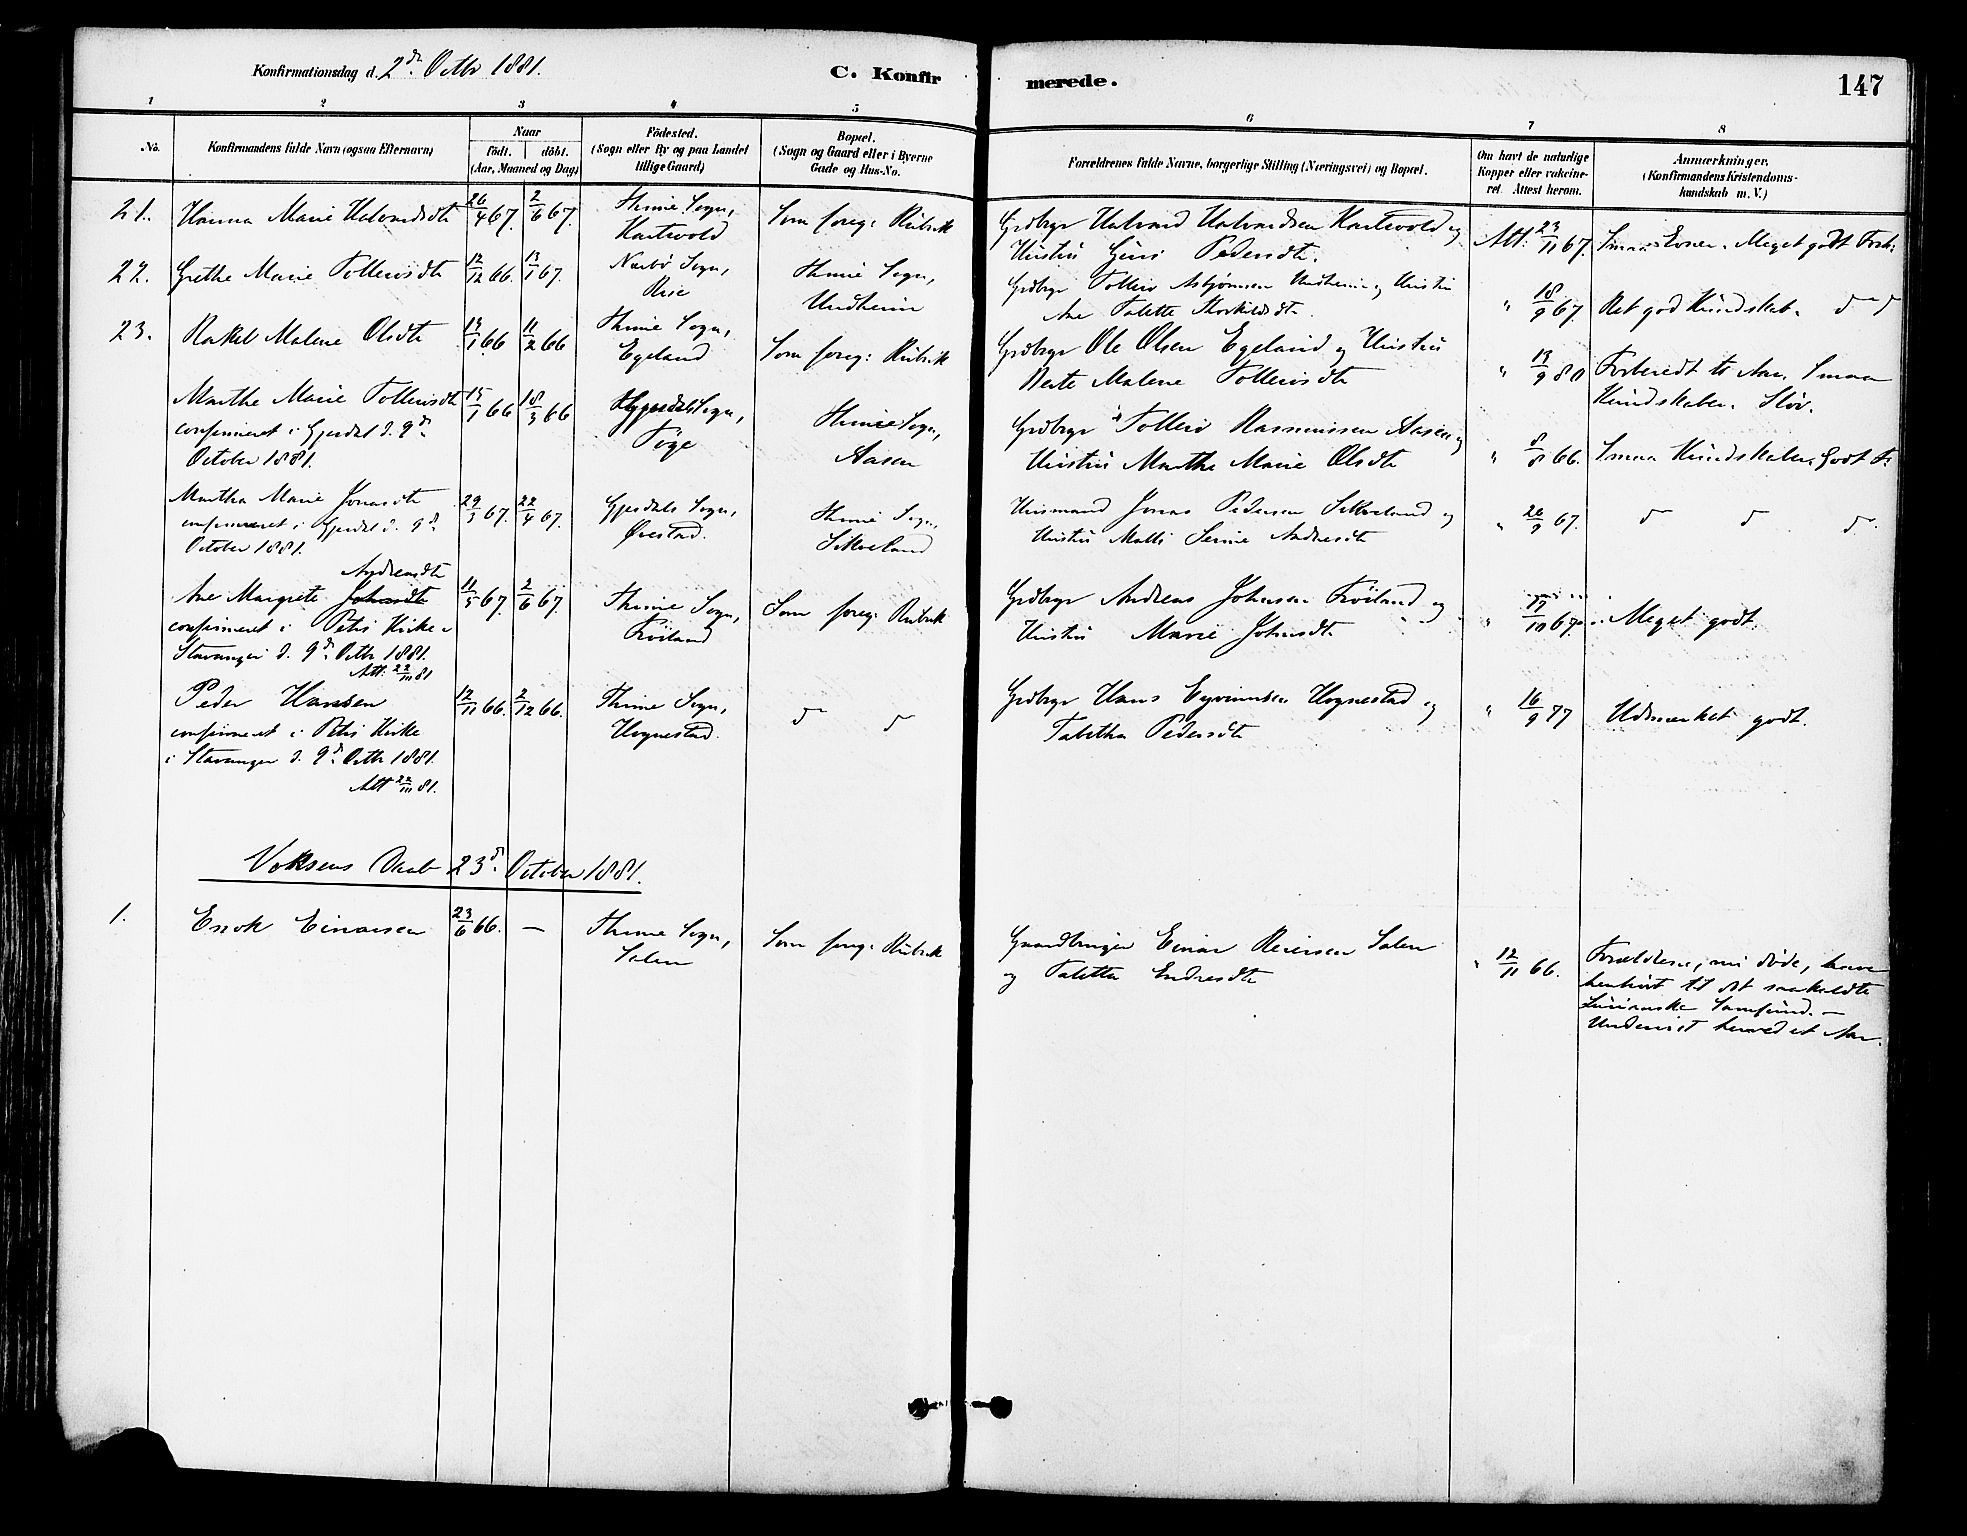 Konfirmationsdag d. 2den Octbr 1881.
C. Konfir
merede.
147
1 2 3 4 5 6 7 8
No.
Konfirmandens fulde Navn (ogsaa Efternavn)
Naar
födt. döbt.
(Aar, Maaned og Dag)
Födested.
(Sogn eller By og paa Landet
tillige Gaard)
Bopæl.
(Sogn og Gaard eller i Byerne
Gade og Hus-No.
Forældrenes fulde Navne, borgerlige Stilling (Næringsvei) og Bopæl.
Om havt de naturlige
Kopper eller vakcine-
ret. Attest herom.
Anmærkninger.
(Konfirmandens Kristendoms-
kundskab m. V.)
21. Hanna Marie Halvardsdtr 26/4 67. 2/6 67. Thime Sogn, Som foreg: Rubrik Grdbrgr Halvard Halvardsen
Hustru Guri Pedersdtr. Att. 23/11 67. Smaa Evner. Meget godt Forh:
22. Grethe Marie Tollevsdtr 12/12 66. 13/1 67. Narbö Sogn, Thime Sogn,
Undheim
Grdbrgr Tollev Asbjörnsen Undheim og Hustru
Ane Talette
" 18/9 67. Ret god Kundskab. do do
23. Rakel Malene Olsdtr 11/2 66 Thime Sogn,
Egeland Som foreg: Rubrik
Grdbrgr Ole Olsen Egeland og Hustru
Berte Malene Tollevsdtr
" 9 80 Forberedt to Aar. Smaa
Kundskaber. Slöv.
Marthe Marie Tollevsdtr 15/1 66 18/3 66 Sogn,
confirmeret i Gjesdal d. 9de
October 1881.
Thime Sogn,
Aasen
Grdbrgr Tollev Rasmussen Aasen og
Hustru Marthe Marie Olsdtr
" 8/8 66. Smaa Kundskaber. Godt F:
Martha Marie Jonasdtr 67. 22/4 67. Gjesdals Sogn,
confirmeret i Gjesdal d. 9de
October 1881.
Thime Sogn,
Husmand Jonas Pedersen og
Hustru Malli Serine Andreasdtr
" 26/9 67. do do do.
Andreasdtr
Ane Margrete Johnsdtr 11/5 67. 2/6 67. Thime Sogn,
Fröiland Som foreg: Rubrik
confirmeret i Petri Kirke i
Stavanger d. 9de Octbr 1881.
Att. 22/10 81
Grdbrgr Andreas Johnsen Fröiland og
Hustru Marie Johnsdtr.
" 17/10 67. Meget godt.
Peder Hansen 12/11 66. 2/12 66. Thime Sogn,
Hognestad. do do
confirmeret i Petri Kirke
i Stavanger d. 9de Octbr 1881.
Att 22/10 81.
Grdbrgr Hans Hognestad og
Tabitha Pedersdtr
" 16/9 77 Udmærket godt.
Voksens Daab 23de October 1881.
1. Enok Einarsen 23/6 66. — Thime Sogn,
Salen Som foreg: Rubrik
Gaardbruger Einar Reiersen Salen
og Tabitta Endresdtr
" 12/11 66. Forældrene, nu döde, have
henhört til det saakaldte
Samfund. —
Underviist henved et Aar.